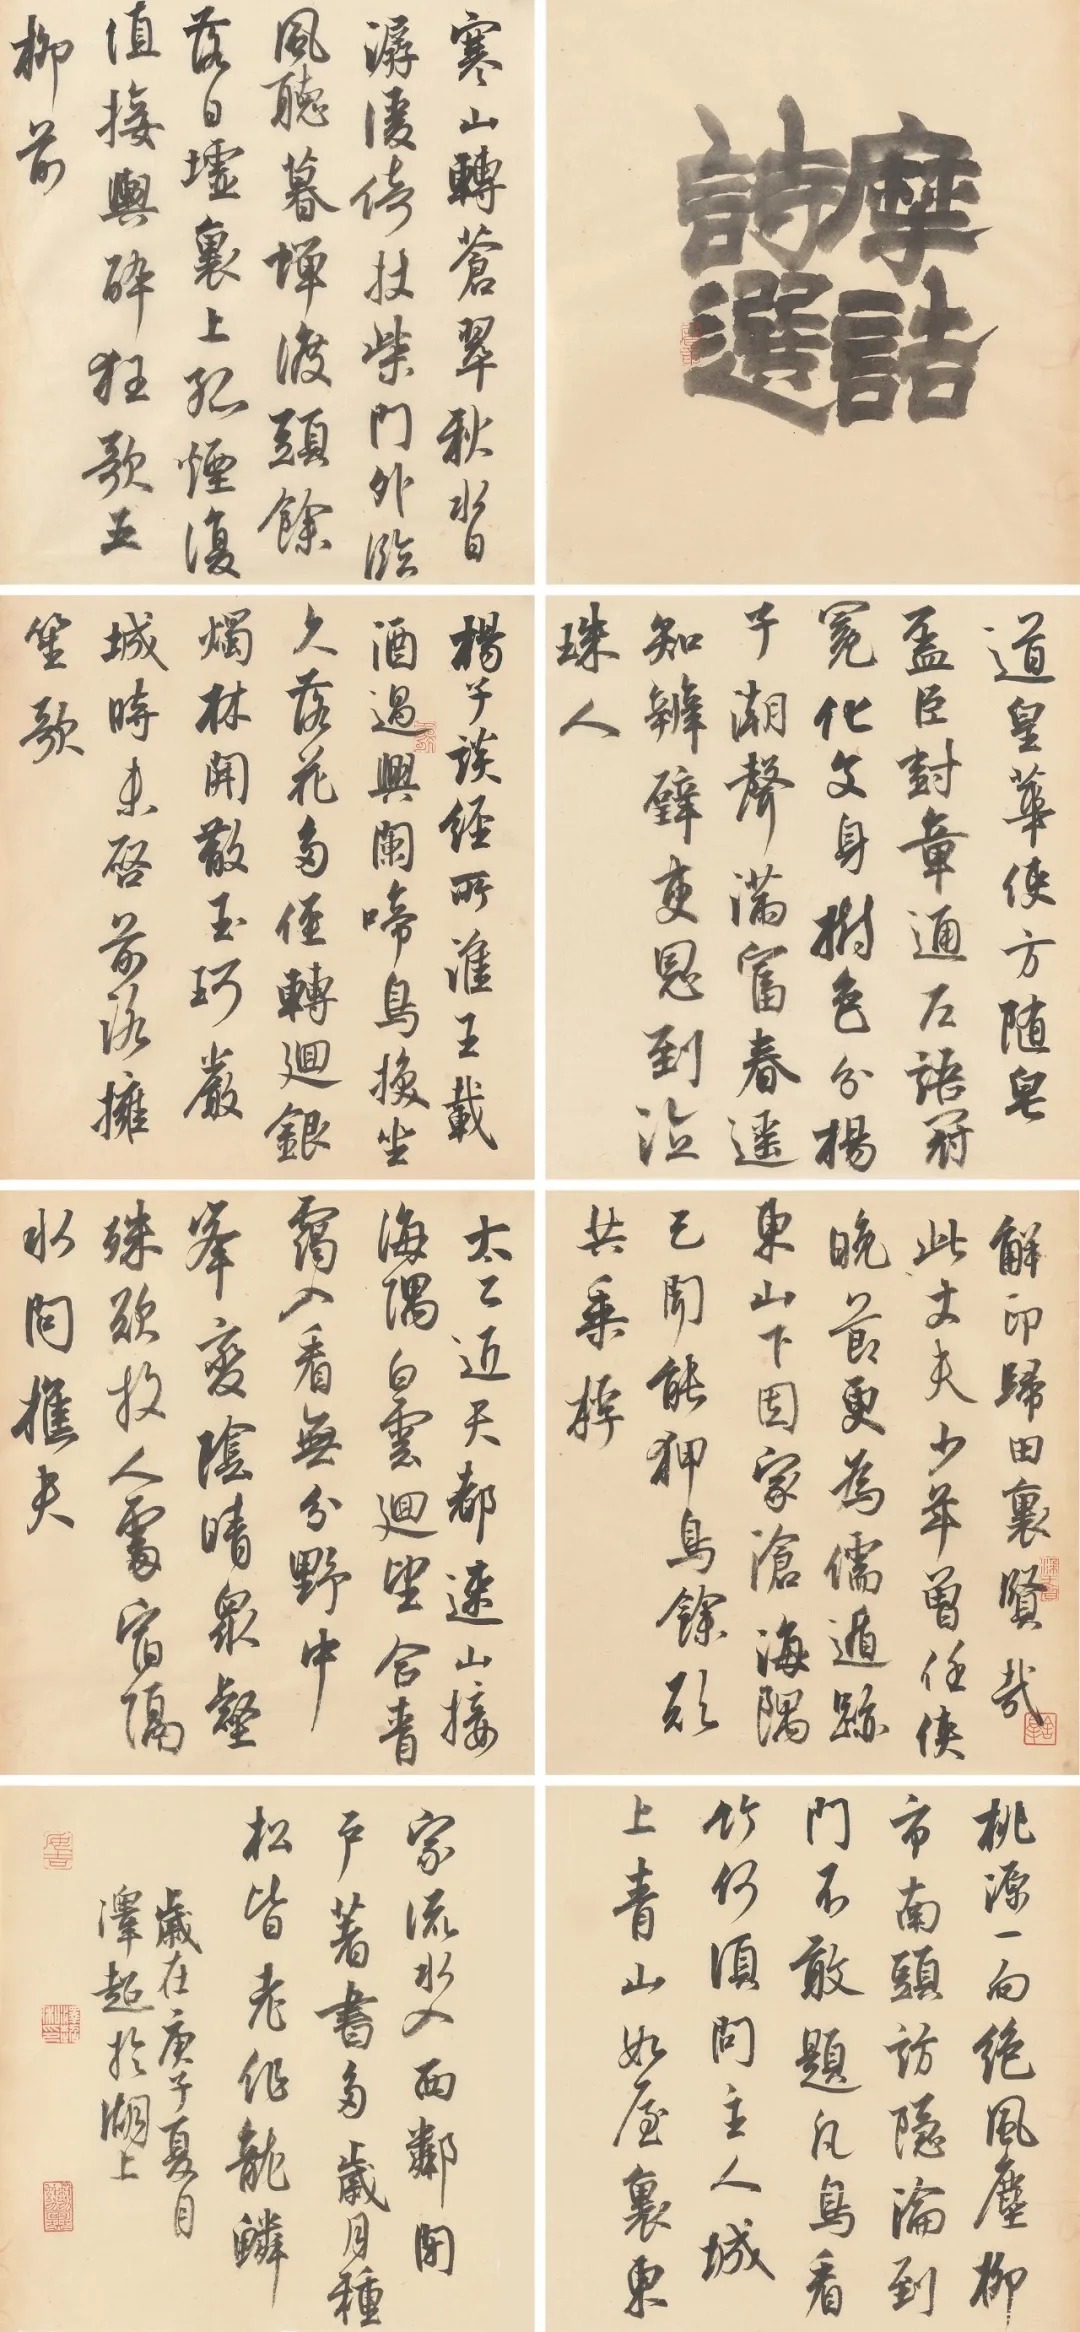 摩詰
詩選
寒山轉蒼翠秋水日
潺湲倚杖柴門外臨
風聽暮蟬渡頭餘
落日墟裏上孤煙復
值接輿醉狂歌五
柳前
道皇華使方随皂
蓋臣封章通左語冠
冕化文身樹色分楊
子潮聲滿富春遥
知辨璧吏恩到泣
珠人
楊子談經所淮王載
酒過興闌啼鳥換坐
久落花多徑轉迴銀
燭林開散玉珂嚴
城時未啓前路擁
笙歌
解印歸田裏賢哉
此丈夫少年曾任俠
晚節更為儒遁跡
東山下因家滄海隅
已聞能狎鳥餘欲
共乘桴
太乙近天都連山接
海隅白雲迴望合青
靄入看無分野中
峯變陰晴眾壑
殊欲投人處宿隔
水問樵夫
桃源一向絕風塵柳
市南頭訪隱淪到
門不敢題凡鳥看
竹何須問主人城
上青山如屋裏東
家流水入西鄰閉
戶著書多歲月種
松皆老作龍鱗
歲在庚子夏月
澤超於湖上